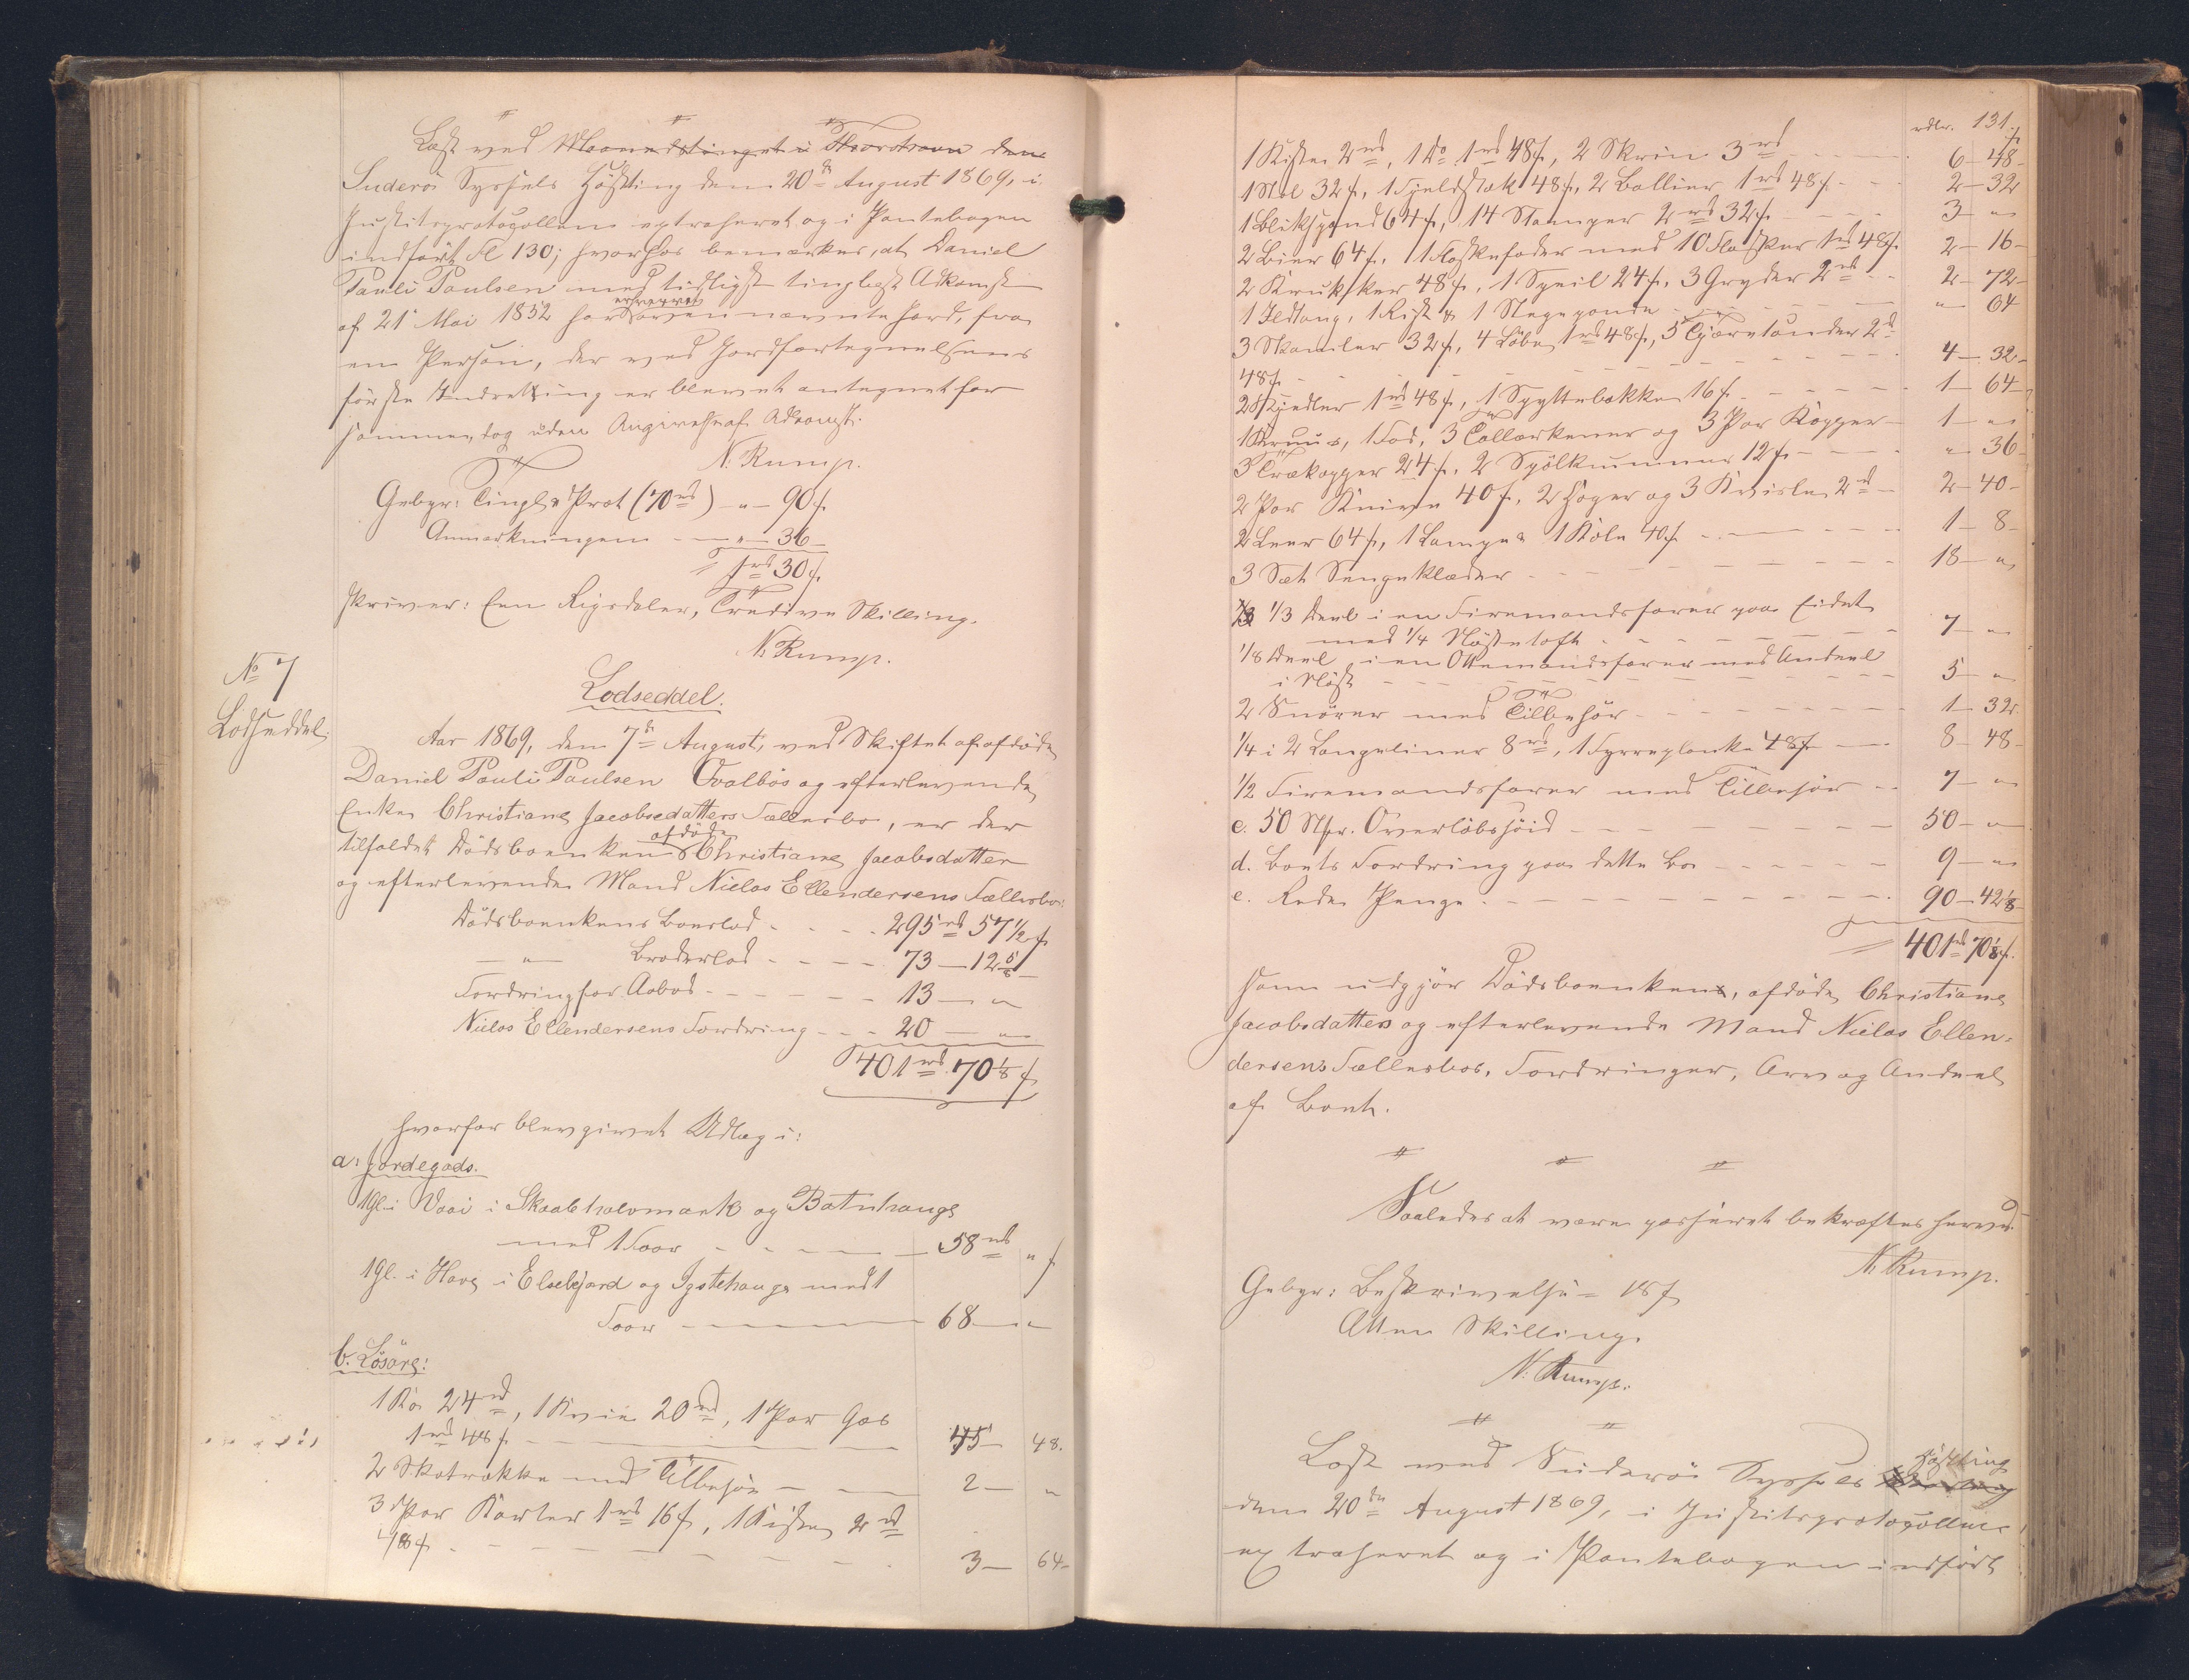 Læst ved Maanedstinget i Thorshavn den
Suderø Syssels Høsting den 20de August 1869, i
Justitsprotocollen extraheret og i Pantebogen
indført Fl 130; hvorhos bemærkes, at Daniel
Pauli Paulsen med tidligst tinglæst Adkomst
af 21 Mai 1852 har erhvervet ovennævnte Jord, fra
en Person, der ved Jordfortegnelsens
første Indretning er blevet antegnet for
sammen, dog uden Angivelse af Adkomst.
N. Rump.
Gebyr: Tingl. & Prot (70 rd) - " - 90 ſ.
Anmærkningen - " - 36 -
1 rd 30 ſ.
skriver: Een Rigsdaler, Tredive Skilling.
N. Rump.
No 7
Lodseddel.
Lodseddel.
Aar 1869, den 7de August, ved Skiftet af afdøde
Daniel Pauli Paulsen Ovalbøs og efterlevende
Enke Christiane Jacobsdatters Fællesbo, er der
tilfaldet Dødsboenken afdøde Christiane Jacobsdatter
og efterlevende Mand Niclas Ellendersens Fællesbo:
Dødsboenkens Boeslod - - - - 295 rd 57 1/2 ſ
— " — Broderlod - - - - 73 — 12 5/8 —
Fordring for Aabod - - - - - - 13 — "
Niclas Ellendersens Fordring - - - 20 — "
401 rd 70 1/8 ſ
hvorfor blev givet Udlæg i:
a: Jordegods.
1 Gl. i Vaai i Skaalehalvmark og Botnhauge
med 1 Foer - - - - 58 rd " ſ
1 Gl. i Hove i Elsebjørd og Igstehauge med 1
Foer - - - - 68 — "
b. Løsøre:
1 Ko 24 rd, 1 Kvie 20 rd, 1 Par Gæs
1 rd 48 ſ - - - - 45 — 48.
2 Skotrokke med Tilbehør - - - 2 — "
3 Par Karter 1 rd 16 ſ, 1 Kiste 2 rd
48 ſ - - - - 3 — 64 -
rdlr. 131. ſ
1 Kiste 2 rd, 1 Do 1 rd 48 ſ, 2 Skrin 3 rd - - - 6 — 48 -
1 Stol 32 ſ, 1 48 ſ, 2 Ballier 1 rd 48 ſ - - 2 — 32
1 Blikspand 64 ſ, 14 Stamper 2 rd 32 ſ - - - - 3 — "
2 Bier 64 ſ, 1 Flaskefoder med 10 Flasker 1 rd 48 ſ 2 — 16 -
2 Krukker 48 ſ, 1 Speil 24 ſ, 3 Gryder 2 rd - - 2 — 72 -
1 Ildtang, 1 Rist & 1 Stegepande - - - " — 64
3 Skamler 32 ſ, 4 Løbe 1 rd 48 ſ, 5 Tjæretønder 2 rd
48 ſ - - - - 4 — 32 -
2 Kjedler 1 rd 48 ſ, 1 Spyttebakke 16 ſ - - - - 1 — 64 -
1 Kruus, 1 Fad, 3 Tallerkener og 3 Par Kopper - 1 — "
3 Trækopper 24 ſ, 2 Spølkummer 12 ſ - - - " — 36 -
2 Par Knive 40 ſ, 2 Hager og 3 Krisle 2 rd - 2 — 40 -
2 Leer 64 ſ, 1 Lampe & 1 Kole 40 ſ - - - 1 — 8 -
3 Sæt Sengeklæder - - - - 18 — "
1/3 Deel i en Firemandsfarer paa Eidet
med 1/4 Nøstetoft - - - - 7 — "
1/8 Deel i en Ottemandsfarer med Andeel
i Nøst - - - - 5 — "
2 Snører med Tilbehør - - - - 1 — 32
1/4 i 2 Langeliner 8 rd, 1 Fyrreplanke 48 ſ — 8 — 48 -
1/2 Firemandsfarer med Tilbehør - - 7 — "
c. 50 Stkr. Overløbshøid - - - - 50 — "
d. Boets Fordring paa dette Bo - - - - 9 — "
e. Rede Penge - - - - 90 — 42 1/8 -
401 rd 70 1/8 ſ.
som udgjør Dødsboenkens, afdøde Christiane
Jacobsdatters og efterlevende Mand Niclas Ellen-
dersens Fællesbos, Fordringer, Arv og Andeel
af Boet.
Saaledes at være passeret bekræftes herved.
N. Rump.
Gebyr: Beskrivelse = 18 ſ
Atten Skilling.
N. Rump.
Læst ved Suderø Syssels Høsting
den 20de August 1869, i Justitsprotocollen
extraheret og i Pantebogen indført